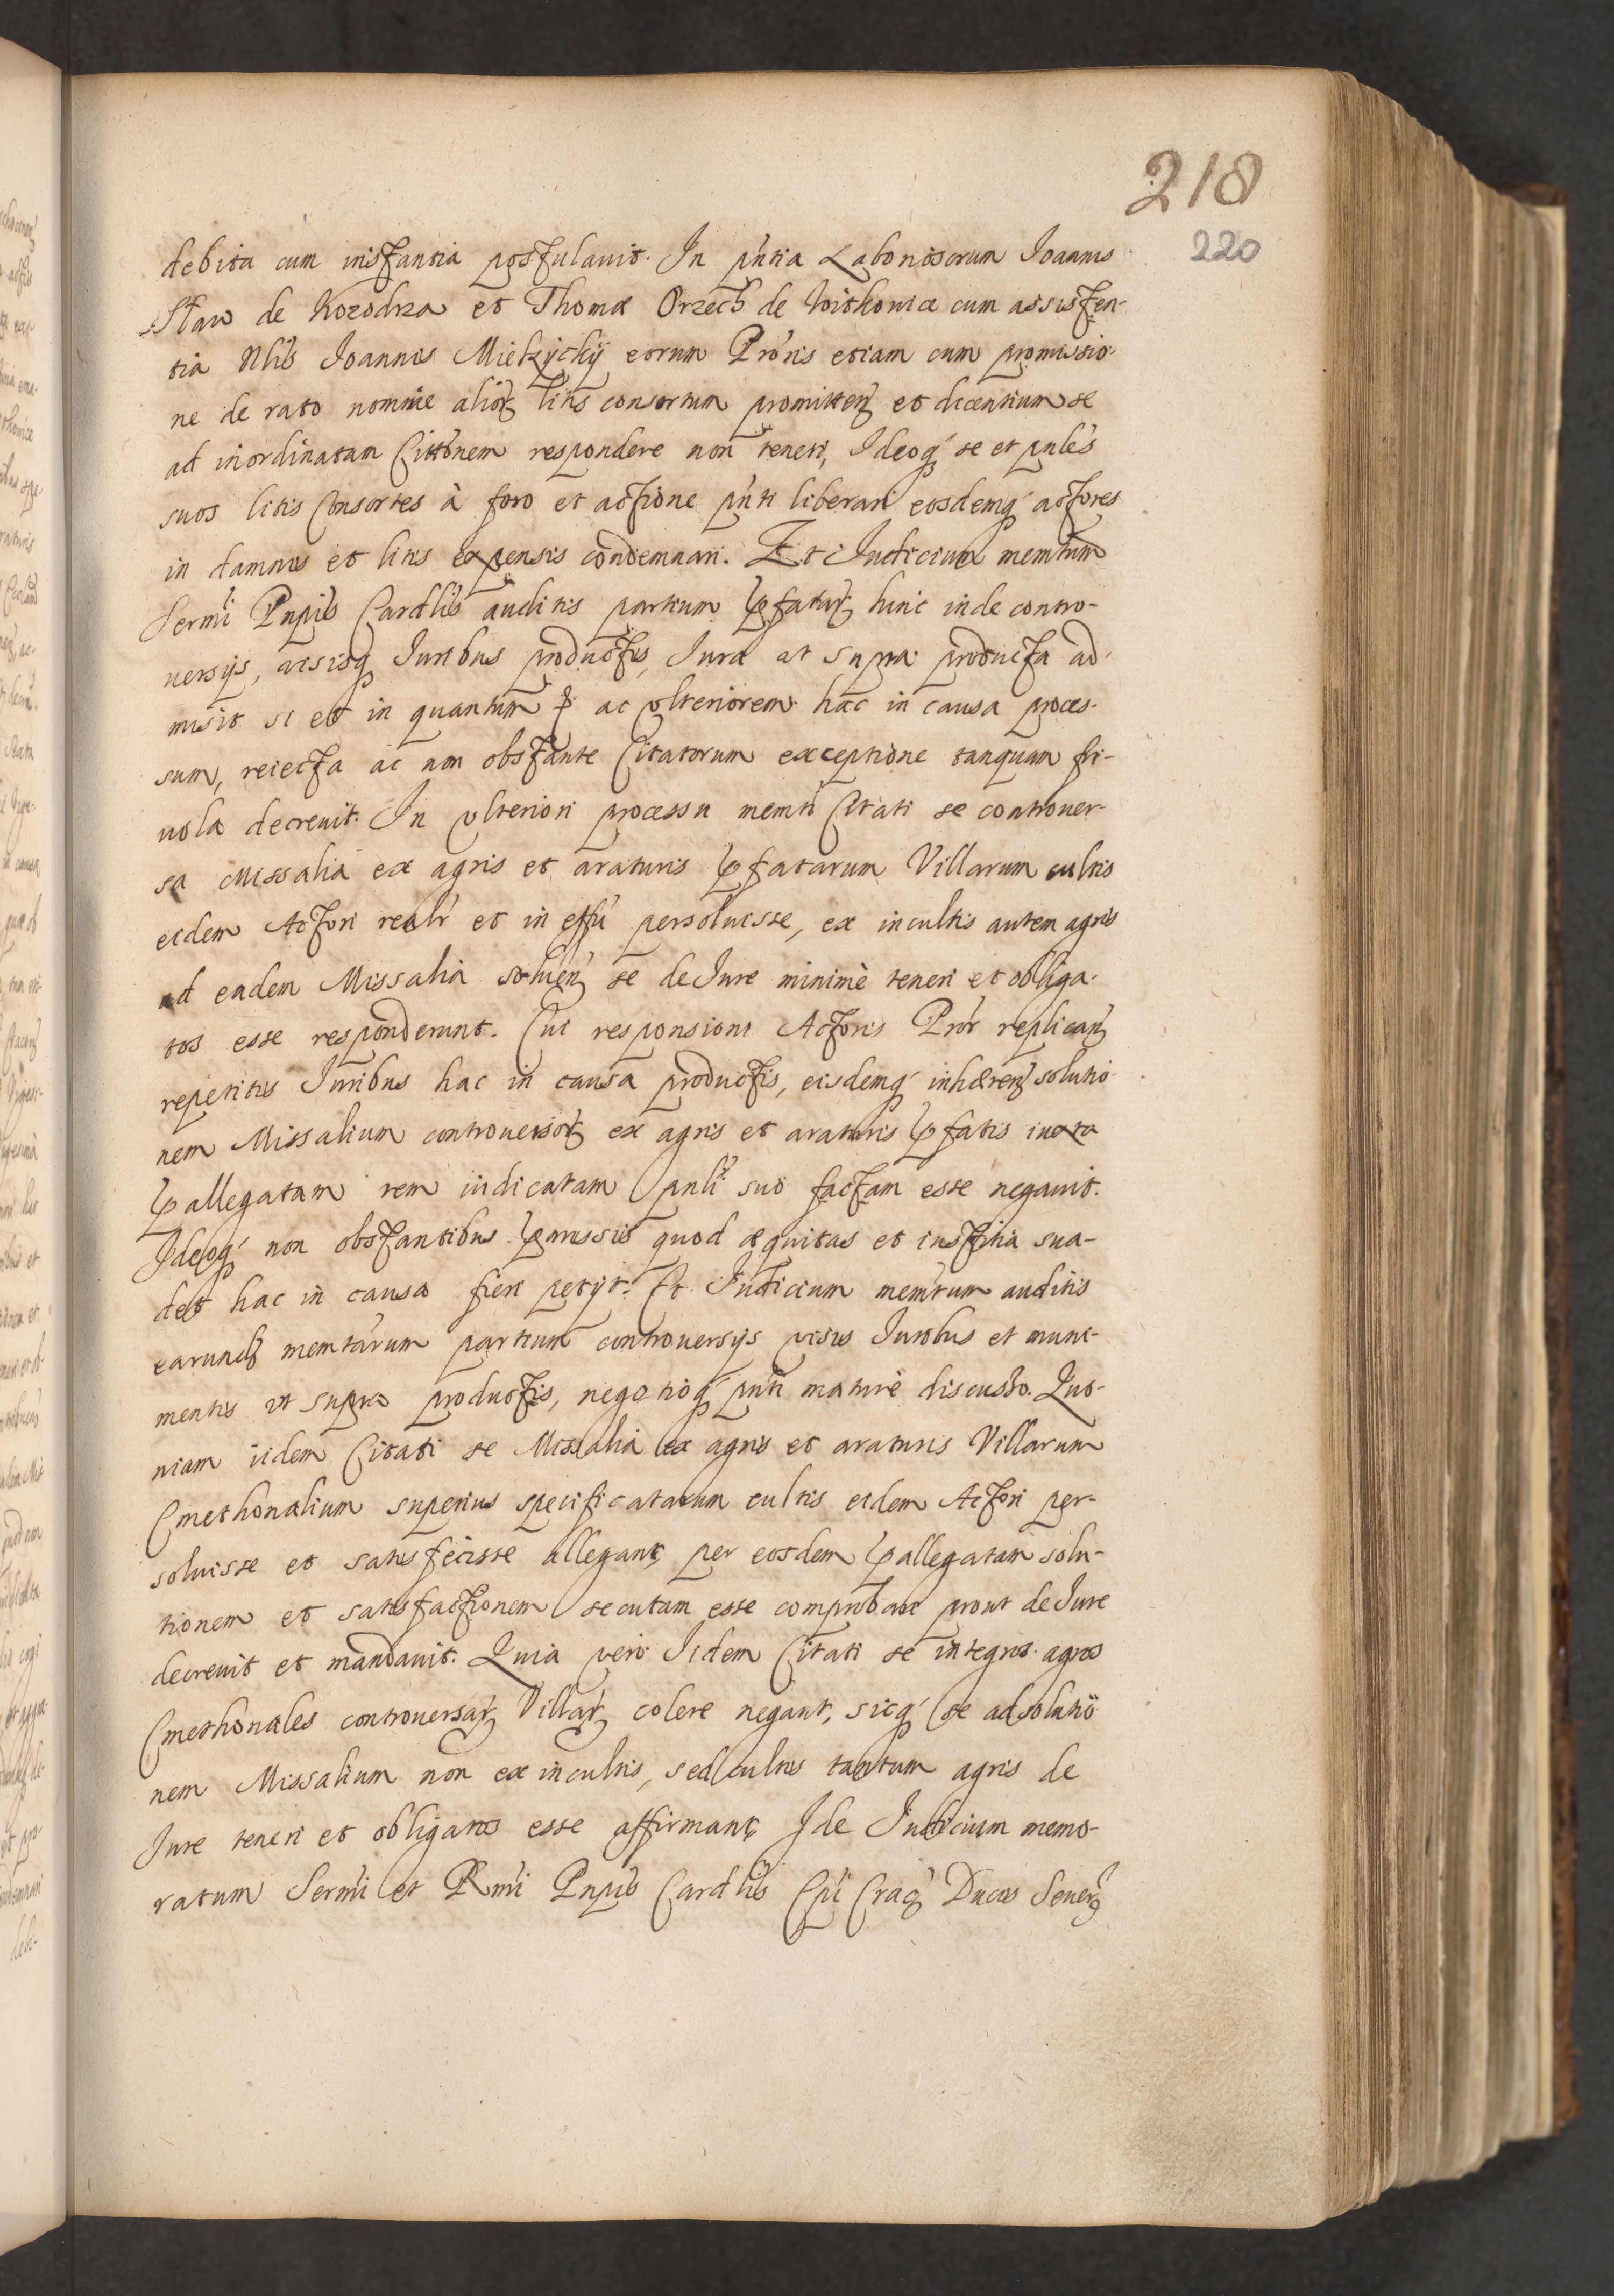 218
220
debita cum instantia postulauit. In pñtia Laboriosorum Ioannis
Staw de Kozodrza et Thomæ Orzech de Woitkowicæ cum assisten-
tia Nlis Ioannis Mielzyckÿ eorum Proris etiam cum promissio-
ne de rato nomine alior litis consortum promitten et dicentium se
ad inordinatam Cittonem respondere non teneri, Ideoq se et pnles
suos litis Consortes à foro et actione pñti liberari eosdemq actores
in damnis et litis expensis condemnari. Et Iudicium memtum
Sermi Pnpis Cardlis auditis partium pfatar hinc inde contro-
uersijs, visisq Iuribus productis, Iura ut supra producta ad-
misit si et in quantum p ac vlteriorem hac in causa proces-
sum, reiecta ac non obstante Citatorum exceptione tanquam fri-
uola decreuit. In vlteriori processu memti Citati se controuer-
sa Missalia ex agris et araturis pfatarum Villarum cultis
eidem Actori realr et in effu persoluisse, ex incultis autem agris
ad eadem Missalia soluen se de Iure minimè teneri et obliga-
tos esse responderunt. Cui responsioni Actoris Pror replican
repetitis Iuribus hac in causa productis, eisdemq inhæren solutio-
nem Missalium controuersor ex agris et araturis pfatis iuxta
pallegatam rem iudicatam pnli suo factam esse negauit.
Ideoq non obstantibus pmissis quod æquitas et iustitia sua-
det hac in causa fieri petijt. Et Iudicium memtum auditis
earund memtarum partium controuersijs visis Iuribus et muni-
mentis ut supra productis, negotioq pñti maturè discusso. Quo-
niam iidem Citati se Missalia ex agris et araturis Villarum
Cmethonalium superius specificatarum cultis eidem Actori per-
soluisse et satisfecisse allegant, per eosdem pallegatam solu-
tionem et satisfactionem secutam esse comprobare prout de Iure
decreuit et mandauit. Quia vero Iidem Citati se integros agros
Cmethonales controuersar Villar colere negant, sicq se ad solutio
nem Missalium non ex incultis, sed cultis tantum agris de
Iure teneri et obligatos esse affirmant, Ide Iudicium memo-
ratum Sermi et Rmi Pnpis Cardlis Epi Crac Ducis Seuer